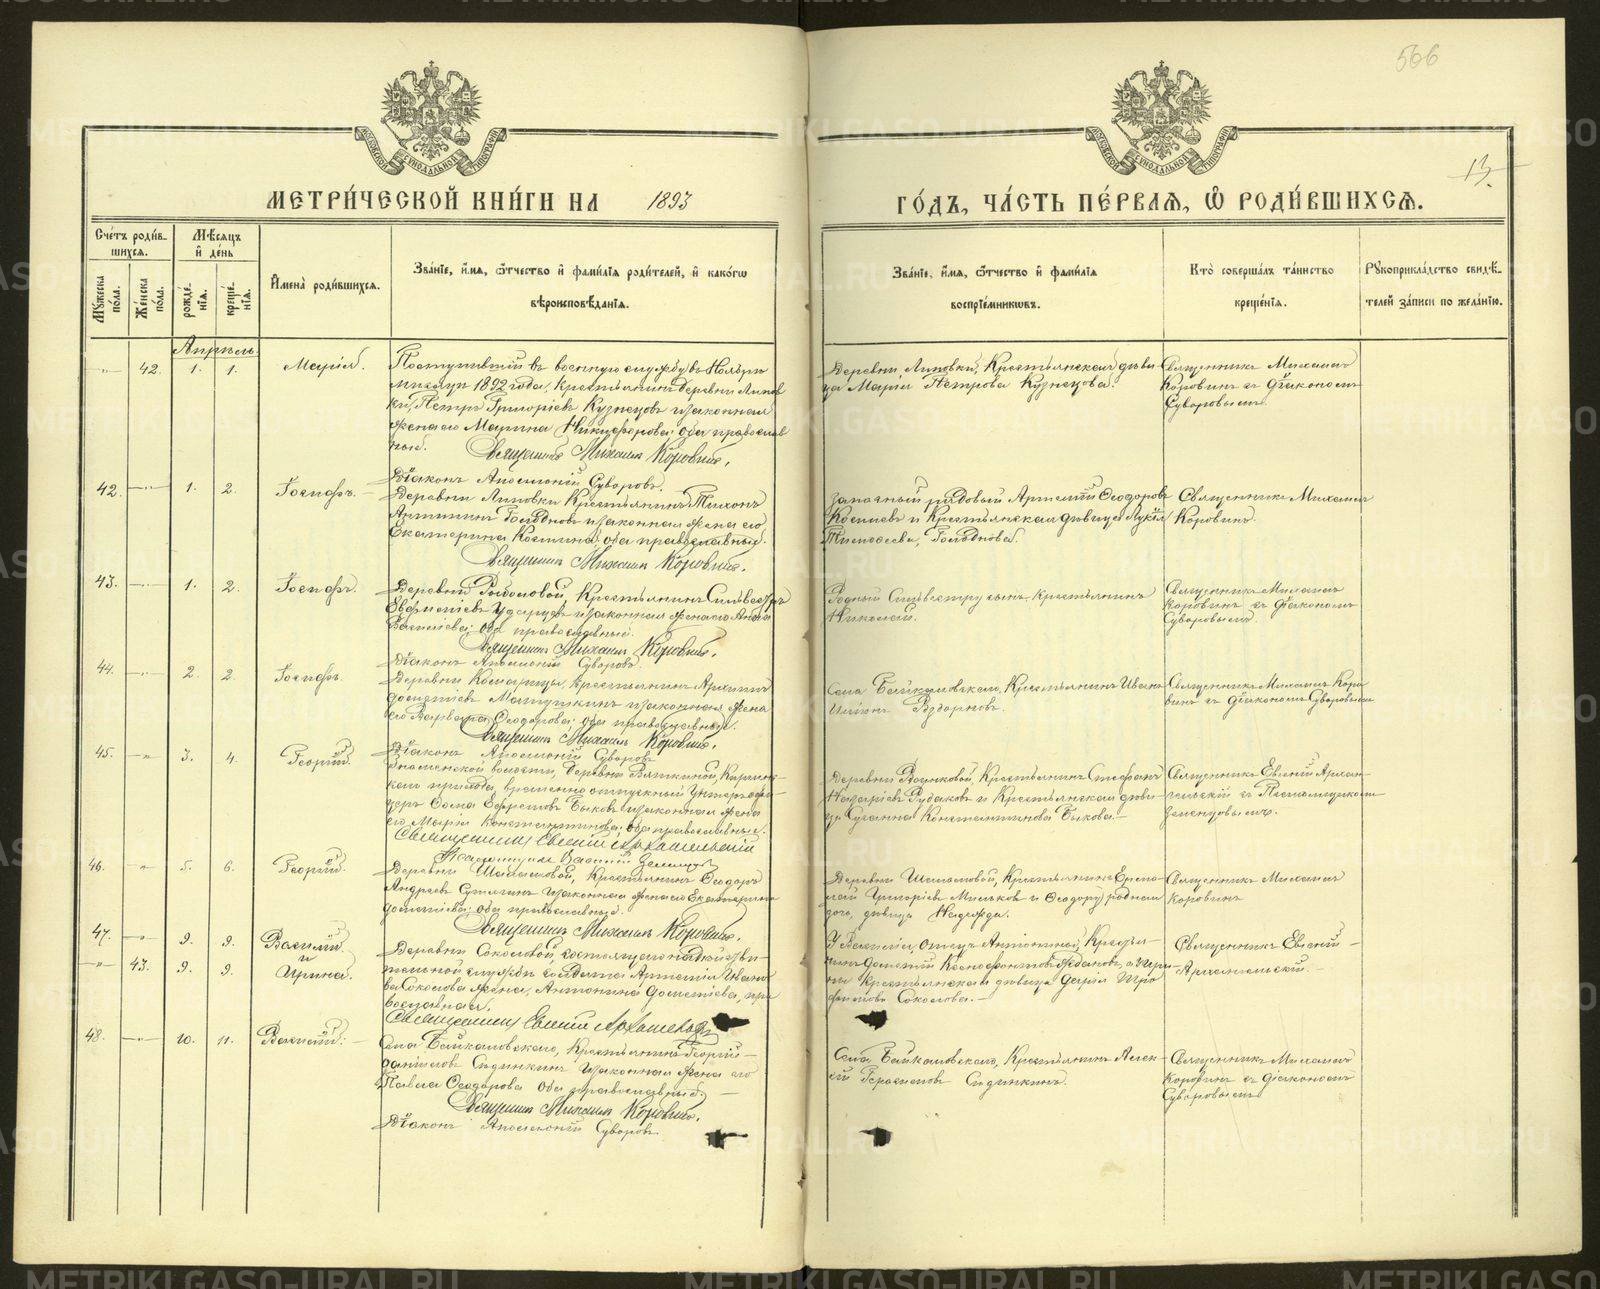 566
13.
МОСКОВСКОЙ СѴНОДАЛЬНОЙ ТИПОГРАФІИ
МОСКОВСКОЙ СѴНОДАЛЬНОЙ ТИПОГРАФІИ
МЕТРИ́ЧЕСКОЙ КНИ́ГИ НА 1893
ГО́ДЪ, ЧА́СТЬ ПЕ́РВАЯ, Ѡ҆ РОДИ́ВШИХСЯ.
Сче́тъ роди́в-
шихся.
Мꙋжеска по́ла.
Же́нска по́ла.
Мѣсяцъ и҆ де́нь
рожде́нїя.
креще́нїя.
И҆мена̀ роди́вшихся.
Зва́нїе, и҆́мя, ѻ҆́тчество и҆ фами́лїя роди́телей, и҆ како́гѡ
вѣроисповѣ́данїя.
Зва́нїе, и҆́мя, ѻ҆́тчество и҆ фами́лїя
воспрїе́мникѡвъ.
Кто̀ соверша́лъ та́инство
креще́нїя.
Рꙋкоприкла́дство свидѣ́-
телей за́писи по жела́нїю.
Апрѣль
42. 1. 1. Марія.
Поступившій въ военную службу въ Ноябрѣ
мѣсяцѣ 1892 года, крестьянинъ деревни Липов
ки, Петръ Григоріевъ Кузнецовъ и законная
жена его Марина Никифорова; оба православ
ные.
Священникъ Михаилъ Коровинъ.
Діаконъ Аполлоній Суворовъ.
Деревни Липовки, Крестьянская дѣви
ца Марія Петрова Кузнецова.
Священникъ Михаилъ
Коровинъ съ діакономъ
Суворовымъ.
42. 1. 2. Іосифъ.
Деревни Липовки Крестьянинъ Тихонъ
Голоднов и законная жена его
Екатерина Костина; оба православные.
Священникъ Михаилъ Коровинъ.
Запасный рядовый Артемій Ѳеодоровъ
и Крестьянская дѣвица Лукія
Тимоѳеева, Голоднова.
Священникъ Михаилъ
Коровинъ.
43. 1. 2. Іосифъ.
Деревни Крестьянинъ Сильвестръ
и законная жена его Анна
Васильева; оба православные.
Священникъ Михаилъ Коровинъ.
Діаконъ Аполлоній Суворовъ.
Родный Сильвестру сынъ, крестьянинъ
Николай.
Священникъ Михаилъ
Коровинъ съ діакономъ
Суворовымъ.
44. 2. 2. Іосифъ.
Деревни Крестьянинъ Архипъ
и законная жена
его Варвара Ѳеодорова; оба православные.
Священникъ Михаилъ Коровинъ.
Діаконъ Аполлоній Суворовъ
Села Байкаловскаго, Крестьянинъ Иванъ
Вздорновъ.
Священникъ Михаилъ Коро
винъ съ діакономъ Суворовымъ
45. 3. 4. Георгій.
Знаменской волости, Деревни Вяткиной, Кирги-
скаго прихода, временно отпускный Унтеръ-офи-
церъ Сосма Ефремовъ Быковъ и законная жена
его Марія Константинова; оба православные.
Священникъ Евгеній Архангельскій
Псаломщикъ Василій
Крестьянинъ Стефанъ
Назаріевъ Рудаковъ и Крестьянская дѣви-
ца Сусанна Константинова Быкова.
Священникъ Евгеній Архан-
гельскій съ Псаломщикомъ
46. 5. 6. Георгій.
Деревни Шаламовой, Крестьянинъ Ѳеодоръ
Андреевъ и законная жена его Екатерина
Дометіева; оба православные.
Священникъ Михаилъ Коровинъ.
Деревни Шаламовой, Крестьяне Ереме-
Григоріевъ Миньковъ и Ѳеодору родная
дочь, дѣвица Надежда.
Священникъ Михаилъ
Коровинъ
47. 9. 9. Василій
и
43. 9. 9. Ирина.
Деревни Соколовой, состоящаго на дѣйстви-
тельной службѣ солдата Артемія Ивано
ва Соколова жена, Антонина Дометіева, пра
вославная.
Священникъ Евгеній Архангельскій
У Василія, отецъ Антонины, Крестья-
нинъ Дометій Ксенофонтовъ а Ири-
ны крестьянская дѣвица Дарія Тро
фимова Соколова.
Священникъ Евгеній
Архангельскій.
48. 10. 11. Василій.
Села Байкаловскаго, Крестьянинъ Георгій
Даниловъ Сидинкинъ и законная жена его
Павла Ѳеодорова оба православные.
Священникъ Михаилъ Коровинъ.
Діаконъ Аполлоній Суворовъ.
Села Байкаловскаго, Крестьянинъ Алек-
сій Герасимовъ Сидинкинъ.
Священникъ Михаилъ
Коровинъ съ діакономъ
Суворовымъ
METRIKI.GASO-URAL.RU